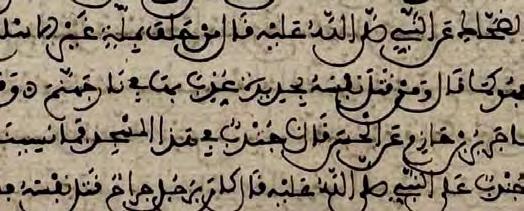 الضحاك عن النبي صلى الله عليه قال من حلف بملة غير
فهو كما قال ومن قتل نفسه بحديدة عذب بها في نار جهنم
نا جرير بن حازم عن الحسن قال نا جندب في هذا المسجد فما نسينا
جندب على النبي صلى الله عليه قال كان برجل جراح قتل نفسه